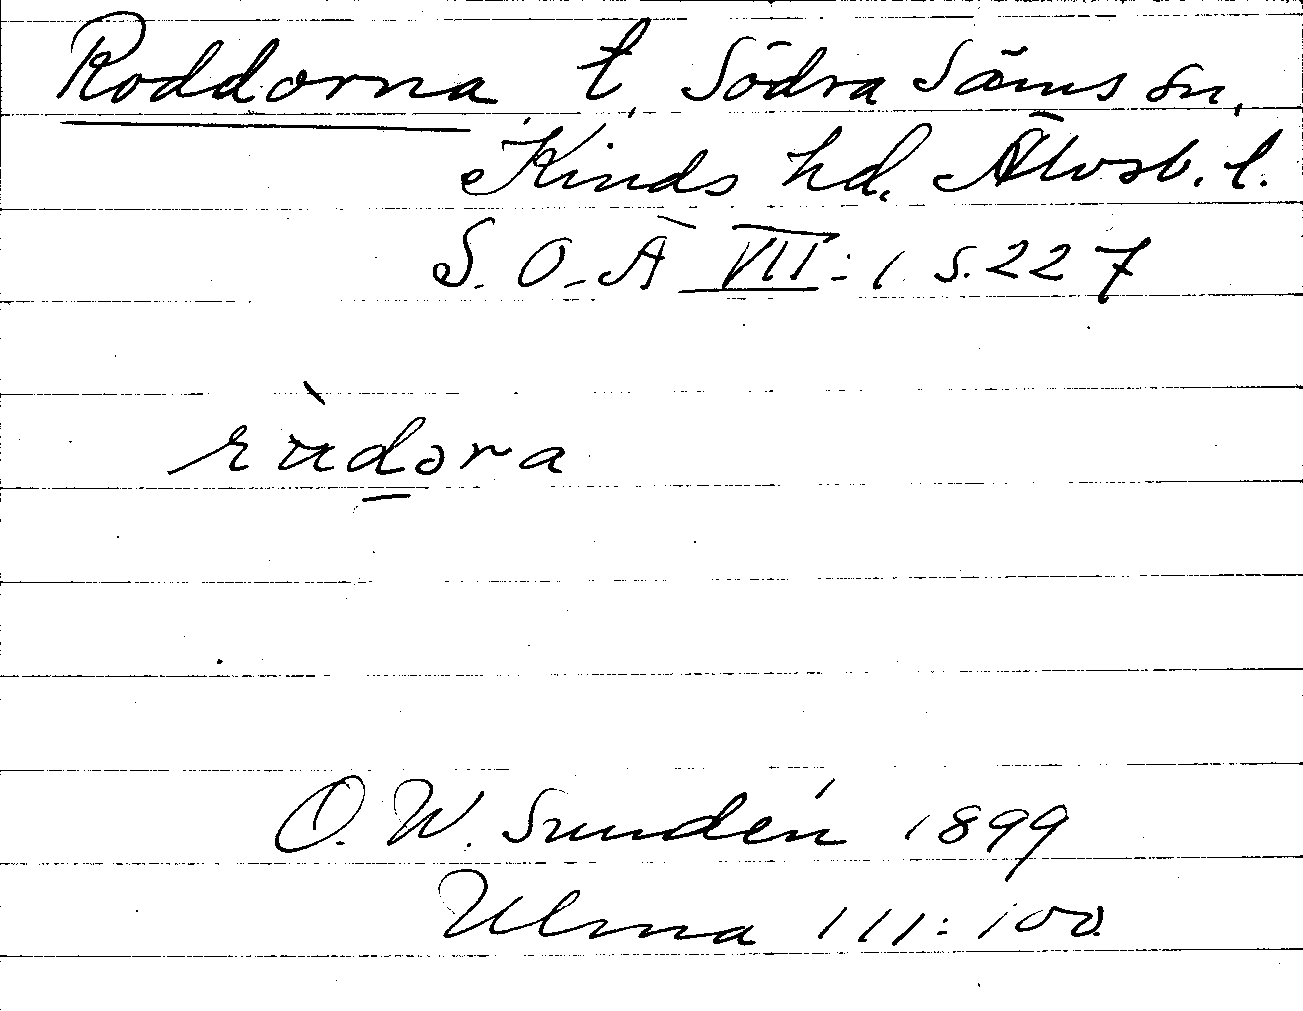 Roddorna t. Södra Säms sn,
Kinds hd. Älvsb. l.
S. O. Ä VII: 1 s. 227
rùdəra
O. W. Sundén 1899
Ulma 111: 100.